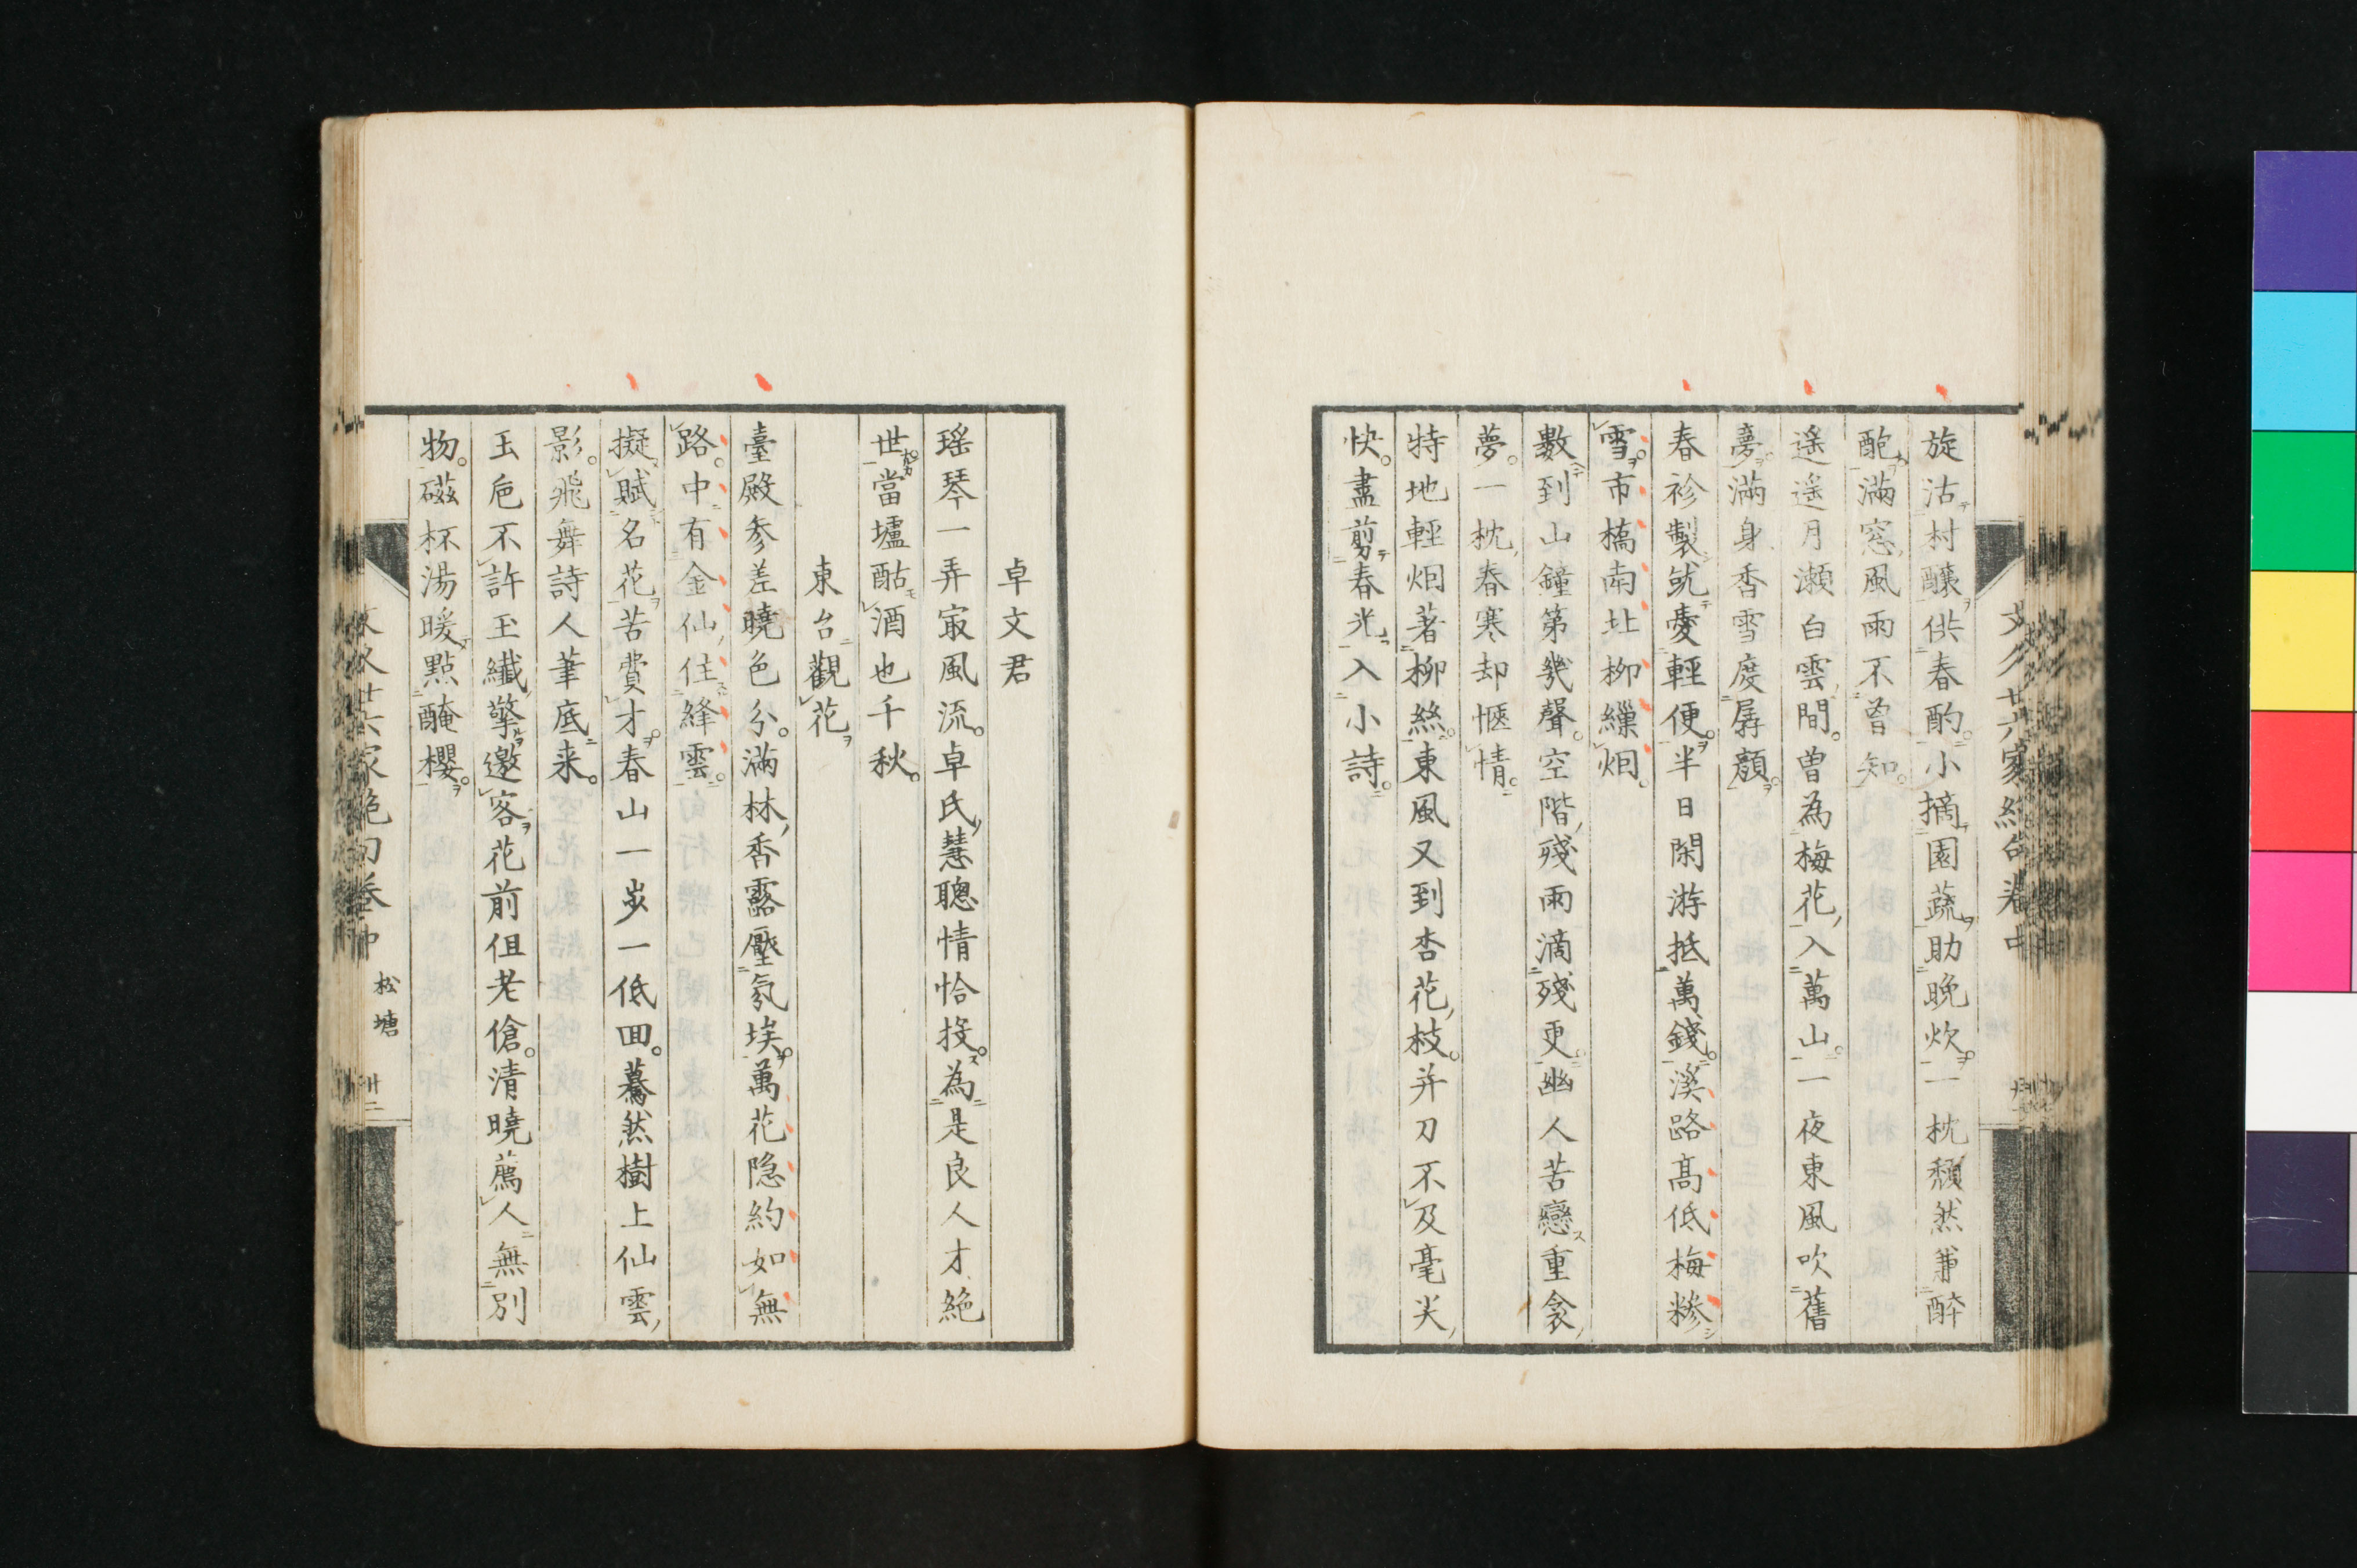 旋沽村醸供春酌。小摘園蔬助晩炊。一枕頽然兼醉
酡滿窓風雨不曾知。
遥遥月瀬白雲間。曽為梅花入萬山。一夜東風吹舊
夢。滿身香雪度孱顔。
春衫製就愛輕便。半日閑游抵萬錢。溪路髙低梅糝
雪。市橋南北柳繅烟。
數到山鐘第幾聲。空階殘雨滴殘更。幽人苦戀重衾
夢。一枕春寒却愜情。
特地輕烟著柳絲。東風又到杏花枝。并刀不及毫尖
快。盡剪春光入小詩。
文久廿六家絶句巻中
卓文君
瑶琴一弄㝡風流。卓氏慧聰情恰投。為是良人才絶
世。當壚酤酒也千秋。
東台觀花
臺殿参差曉色分。滿林香露壓氛埃。萬花隐約如無
路。中有金仙住絳雲。
擬賦名花苦費才。春山一歩一低回。驀然樹上仙雲
影。飛舞詩人筆底来。
玉卮不許玉纖擎。邀客花前伹老傖。清曉薦人無別
物。磁杯湯暖點醃櫻。
文久廿六家絶句巻中
松塘
廿二